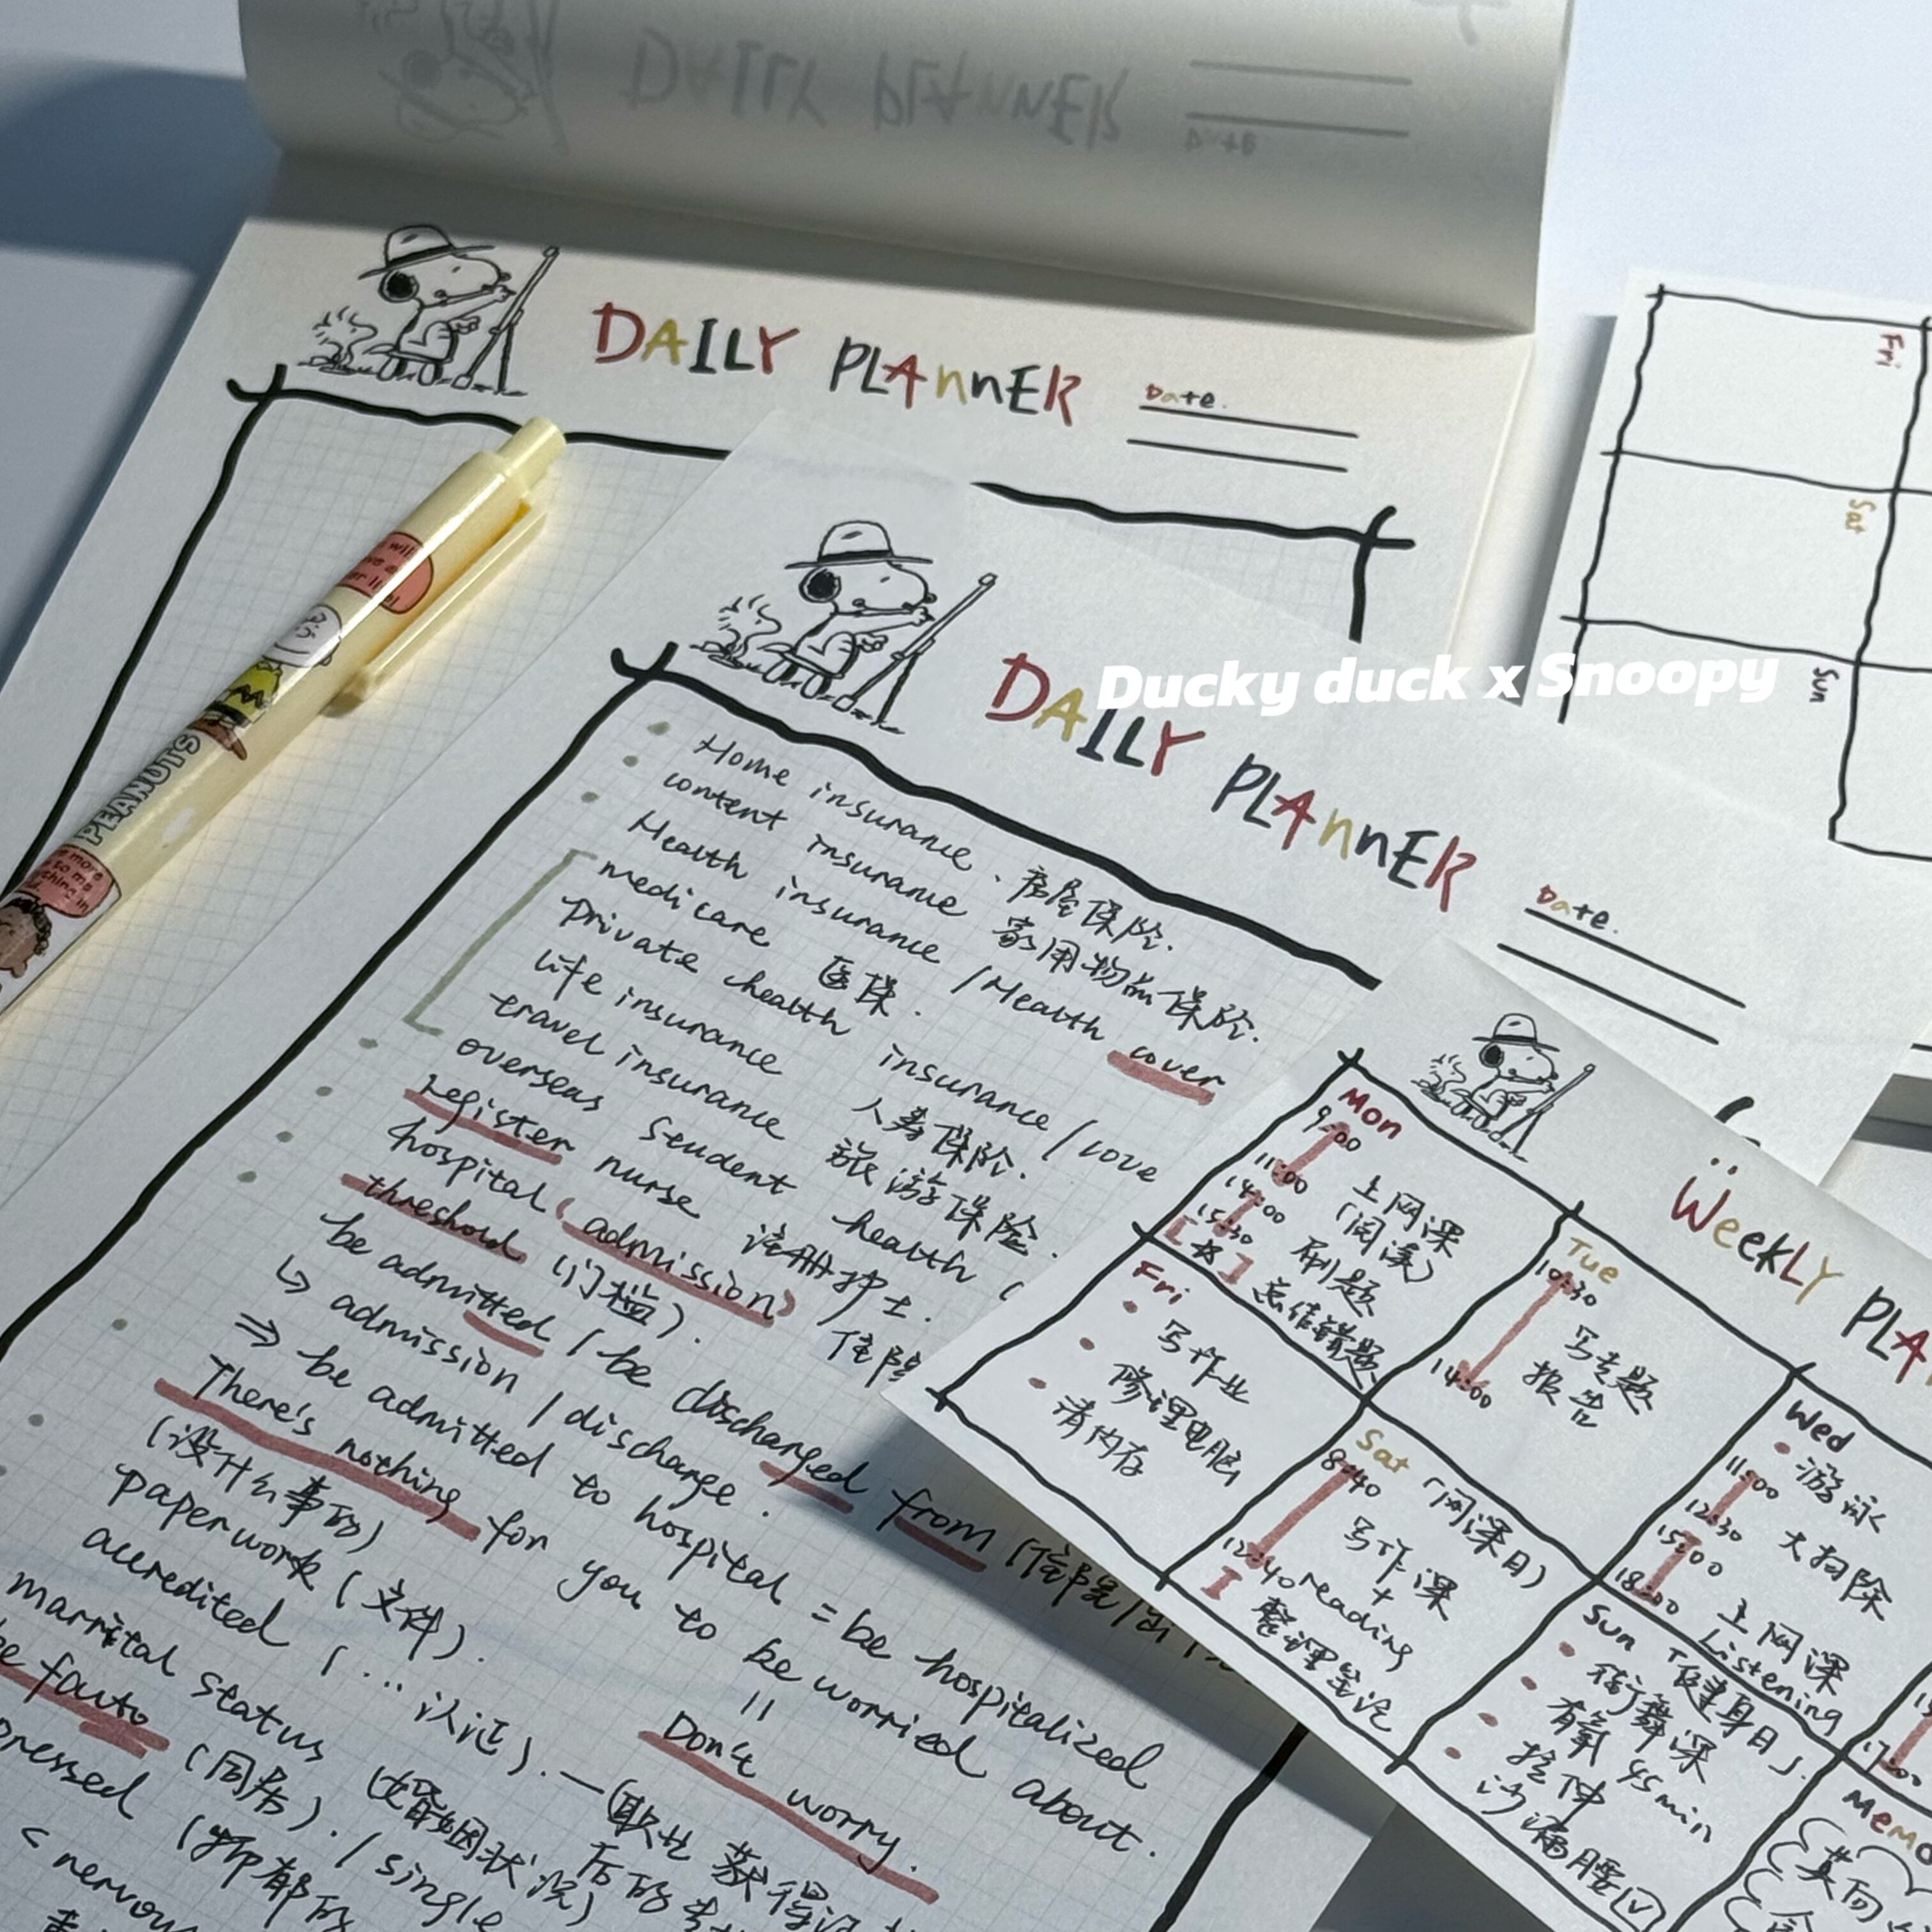 DAILY PLANNER
Date.
Fri
Sat
Sun
PEANUTS
Ducky duck x Snoopy
DAILY PLANNER
Date.
Home insurance 房屋保险.
content insurance 家用物品保险.
Health insurance / Health cover
medicare 医保.
private health insurance / cove
life insurance 人寿保险.
travel insurance 旅游保险.
overseas student health c
register nurse 注册护士.
hospital (admission) 住院
threshold (门槛).
be admitted / be discharged from (住院/出
↳ admission / discharge.
⇒ be admitted to hospital = be hospitalized
There's nothing for you to be worried about.
(没什么事的)
=
Don't worry.
paperwork (文件).
accredited (... 认证). —(职业 获得
marrital status (婚姻状况)
be facto (同居). / single
pressed (抑郁的
< nervou
Weekly PLA
Mon
9:00
11:00 上网课
(阅读)
14:00
15:30 刷题
总结错题
Tue
10:30
写专题
报告
14:00
Wed
游泳
11:00
12:30 大扫除
15:00
18:00 上网课
Listening
Fri
写作业
修理电脑
清内存
Sat 「网课日」
8:40
写作课
+
12:40 reading
整理笔记
Sun 「健身日」.
街舞课
有氧 45min
拉伸
沙漏腰
17:00
Memo